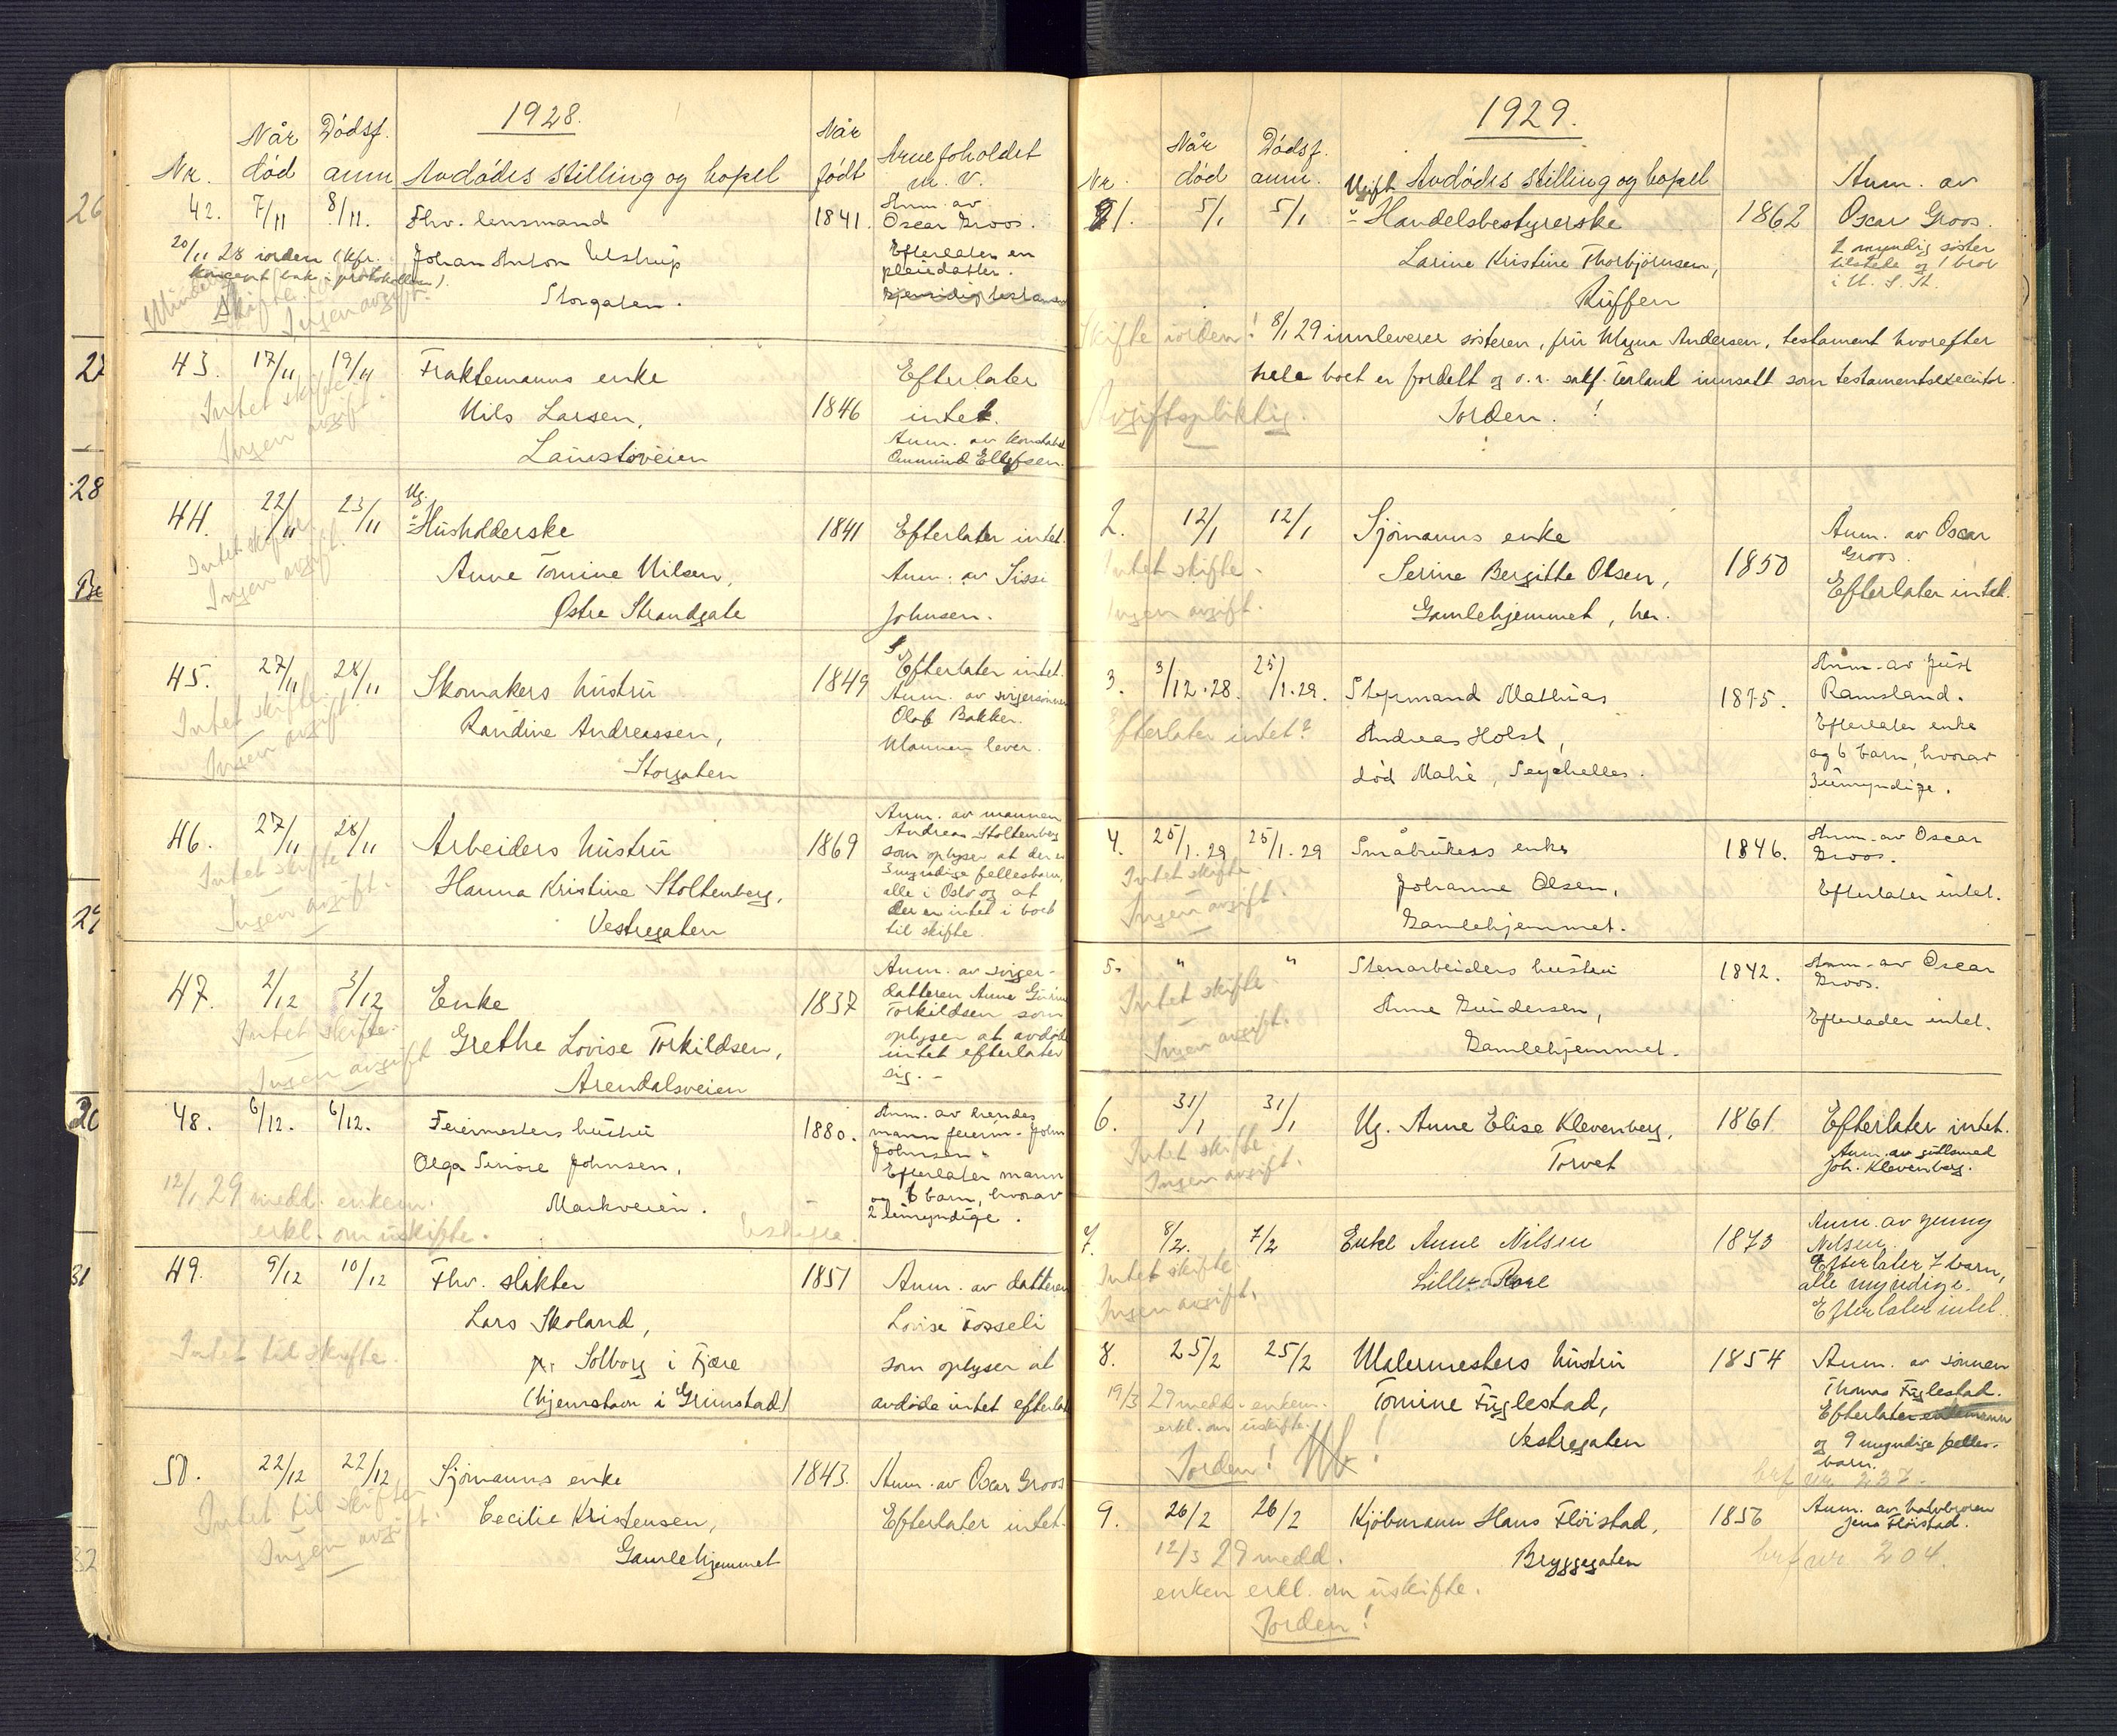 1928.
Nr. Når død Dødsf. anm Avdødes stilling og bopel Når født Arveforholdet m. v.
42. 7/11 8/11. Fhv. lensmand 1841. Anm. av Oscar Groos.
20/11 28 iorden (kfr. Johan Anton Ulstrup Efterlater en
koncept bak i protokollen). pleiedatter.
Storgaten. gjensidig testament
Ingen avgift.
43. 17/11 19/11 Fraktemanns enke Efterlater
Intet skifte Nils Larsen, 1846 intet.
Ingen avgift. Anm. av konstabel
Launstöveien Ommund Ellefsen.
44. 22/11 23/11 Ug. Husholderske 1841 Efterlater intet.
Intet skifte Anne Tomine Nilsen, Anm. av Sissi
Ingen avgift. Østre Strandgate Johnsen.
45. 27/11 28/11 Skomakers hustru 1849 Efterlater intet.
Intet skifte Anm. av svigersönnen
Randine Andreassen, Olaf Bakken.
Ingen avgift. Storgaten Mannen lever.
46. 27/11 28/11 Arbeiders hustru 1869 Anm. av mannen
Andreas Stoltenberg
Intet skifte som oplyser at der er
Hanna Kristine Stoltenberg, 3 myndige fellesbarn,
Ingen avgift. alle i Oslo og at
Vestregaten der er intet i boet
til skifte.
47. 2/12 3/12 Enke 1837 Anm. av sviger-
datteren Anne
Intet skifte. Torkildsen som
Grethe Lovise Torkildsen, oplyser at avdøde
Ingen avgift intet efterlater
Arendalsveien sig. -
48. 6/12. 6/12. Feiermesters hustru 1880. Anm. av hendes
mann feierm. John
Olga Senore Johnsen, Johnsen
Efterlater mann
12/1 29 medd. enkem. Markveien. og 6 barn, hvorav
erkl. om uskifte. 2 umyndige.
49. 9/12 10/12 Fhv. slakter 1851 Anm. av datteren
Lars Skoland, Lovise Tosseli
Intet til skifte. pr Solborg i Fjære som oplyser at
(hjemstavn i Grimstad) avdøde intet efterlat
50. 22/12 22/12 Sjömanns enke 1843. Anm. av Oscar Groos
Intet til skifte Cecilie Kristensen, Efterlater intet.
Ingen avgift. Gamlehjemmet
26
27
28
29
31
32
1929.
Nr. Når død Dødsf. anm. Avdødes stilling og bopel Anm. av
1. 5/1 5/1 Ugift Handelsbestyrerske 1862 Oscar Groos.
Larine Kristine Thorbjörnsen, 1 myndig söster
tilstede og 1 bror
Kuffen i U. S. A.
Skifte iorden! 8/1 29 innleverer sösteren, fru Myna Andersen, testament hvorefter
hele boet er fordelt og o.r. sakf. Terland innsatt som testamentsexecutor.
Avgiftspliktig. Iorden. !
2. 12/1 12/1 Sjömanns enke 1850 Anm. av Oscar
Groos.
Intet skifte. Serine Bergitte Olsen, Efterlater intet.
Ingen avgift. Gamlehjemmet, her.
3. 3/12.28. 25/1.29. Styrmand Mathias 1875. Anm. av Just
Ramsland.
Efterlater intet? Andreas Holst, Efterlater enke
og 6 barn, hvorav
död Mahè, Seychelles. 3 umyndige.
4. 25/1.29 25/1.29 Småbrukers enke 1846. Anm. av Oscar
Groos.
Intet skifte. Johanne Olsen, Efterlater intet.
Ingen avgift. Gamlehjemmet.
5. " " Stenarbeiders hustru 1842. Anm. av Oscar
Groos.
Intet skifte. Anne Gundersen, Efterlader intet.
Ingen avgift. Gamlehjemmet.
6. 31/1 31/1 Ug. Anne Elise Klevenberg, 1861 Efterlater intet.
Intet skifte Torvet Anm. av gullsmed
Ingen avgift. Joh. Klevenberg.
7. 8/2. 7/2 Enke Anne Nilsen 1873 Anm. av Jenny
Nilsen.
Intet skifte. Lille Rore Efterlater 7 barn,
alle myndige.
Ingen avgift. Efterlater intet.
8. 25/2 25/2 Malermesters hustru 1854 Anm. av sönnen
19/3 29 medd. enkem. Tomine Fuglestad, Thomas Fuglestad.
erkl. om uskifte. Efterlater enkemann
Iorden! Vestregaten og 9 myndige felles-
barn.
brf nr. 237.
9. 26/2 26/2 Kjöbmann Hans Flöistad, 1856 Anm. av halvbroren
Jens Flöistad.
12/3 29 medd. Bryggegaten brf nr 204.
enken erkl. om uskifte.
Iorden!